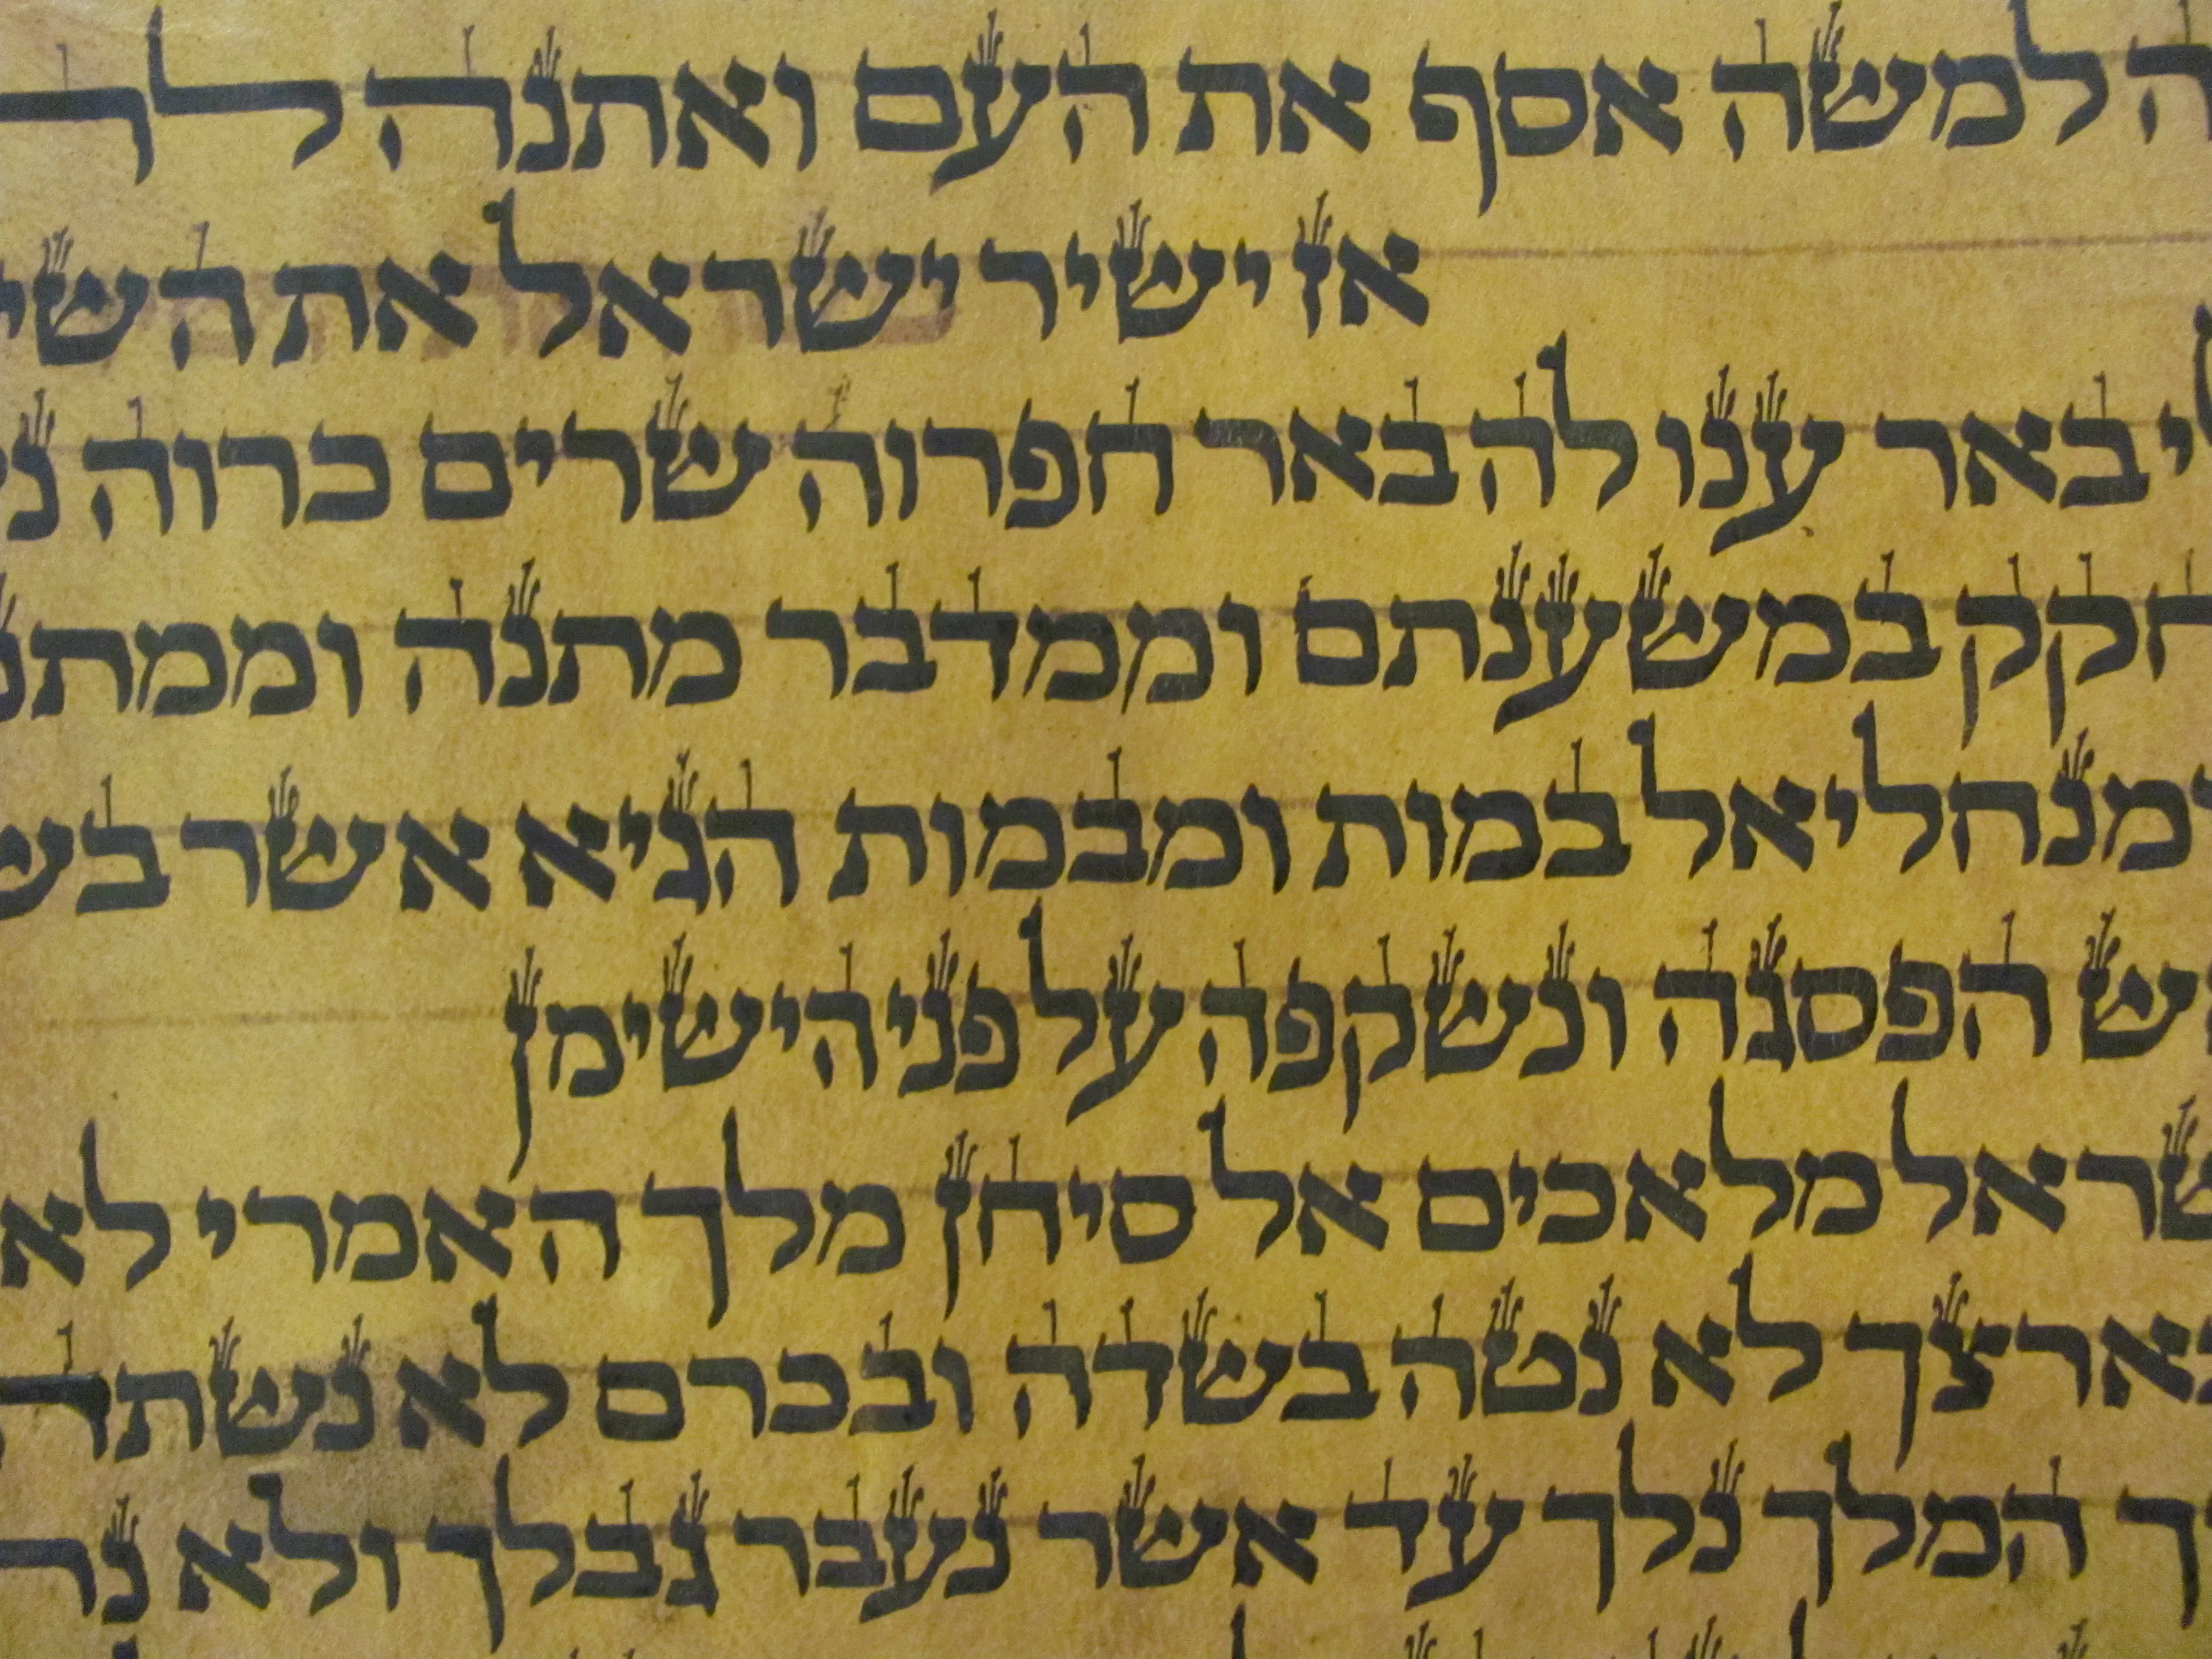 ה למשה אסף את העם ואתנה לה
אז ישיר ישראל את השי
י באר ענו לה באר חפרוה שרים כרוה נ
חקק במשענתם וממדבר מתנה וממתנ
ומנחליאל במות ומבמות הגיא אשר בש
ש הפסגה ונשקפה על פני הישימן
שראל מלאכים אל סיחן מלך האמרי לא
בארצך לא נטה בשדה ובכרם לא נשתה
ך המלך נלך עד אשר נעבר גבלך ולא נת